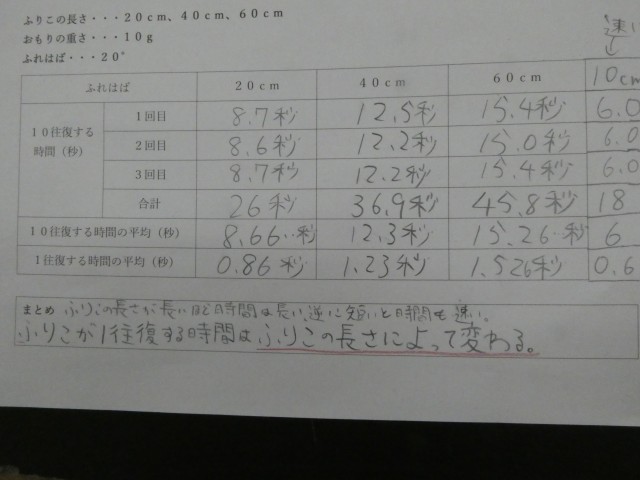 ふりこの長さ・・・20cm、40cm、60cm
おもりの重さ・・・10g
ふれはば・・・20°
速い
ふれはば 20cm 40cm 60cm 10cm
10往復する時間（秒）
1回目 8.7秒 12.5秒 15.4秒 6.0
2回目 8.6秒 12.2秒 15.0秒 6.0
3回目 8.7秒 12.2秒 15.4秒 6.0
合計 26秒 36.9秒 45.8秒 18
10往復する時間の平均（秒） 8.66‥秒 12.3秒 15.26‥秒 6
1往復する時間の平均（秒） 0.86秒 1.23秒 1.526秒 0.6
まとめ ふりこの長さが長いほど時間は長い。逆に短いと時間も速い。
ふりこが1往復する時間はふりこの長さによって変わる。